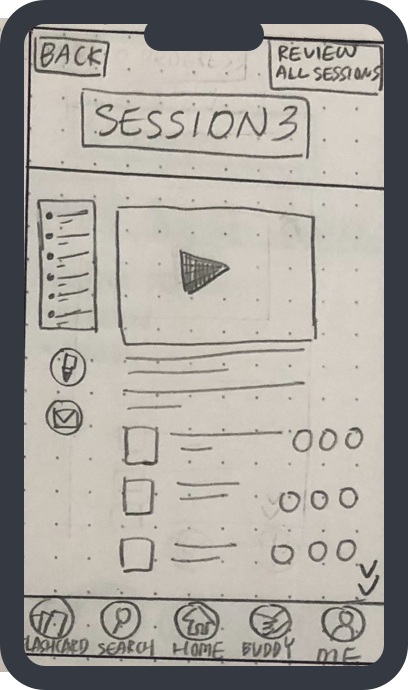 BACK
REVIEW
ALL SESSIONS
SESSION 3
SEARCH
HOME
BUDDY
ME